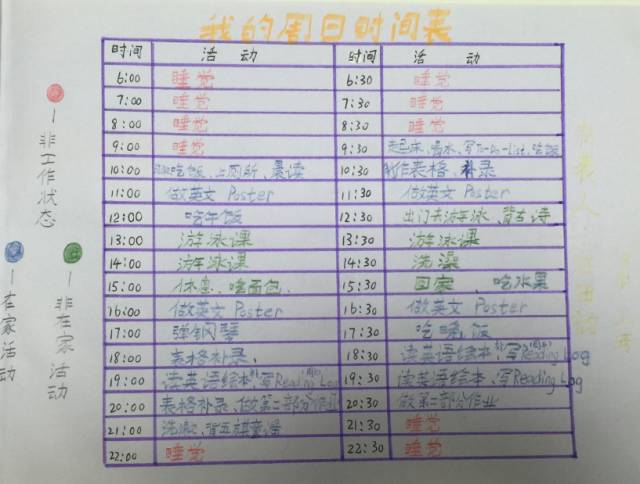 我的周日时间表
时间 活动 时间 活动
6:00 睡觉 6:30 睡觉
7:00 睡觉 7:30 睡觉
8:00 睡觉 8:30 睡觉
9:00 睡觉 9:30 起床、喝水、写To-Do-List、吃饭
10:00 吃饭、上厕所、晨读 10:30 制作表格、补录
11:00 做英文 Poster 11:30 做英文 Poster
12:00 吃午饭 12:30 出门去游泳、背古诗
13:00 游泳课 13:30 游泳课
14:00 游泳课 14:30 洗澡
15:00 休息、啃面包、 15:30 回家、吃水果
16:00 做英文 Poster 16:30 做英文 Poster
17:00 弹钢琴 17:30 吃晚饭
18:00 表格补录、 18:30 读英语绘本、写Reading Log
19:00 读英语绘本、写Reading Log 19:30 读英语绘本、写Reading Log
20:00 表格补录、做第二部分作业 20:30 做第二部分作业
21:00 洗漱、背五 21:30 睡觉
22:00 睡觉 22:30 睡觉
—非工作状态
—在家活动
—非在家活动